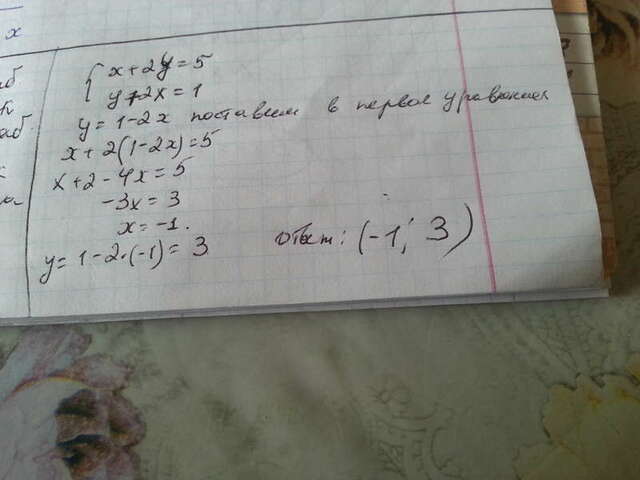 x
x + 2y = 5
y + 2x = 1
y = 1 - 2x поставим в первое уравнение
x + 2(1 - 2x) = 5
x + 2 - 4x = 5
-3x = 3
x = -1.
y = 1 - 2·(-1) = 3
ответ: (-1; 3)